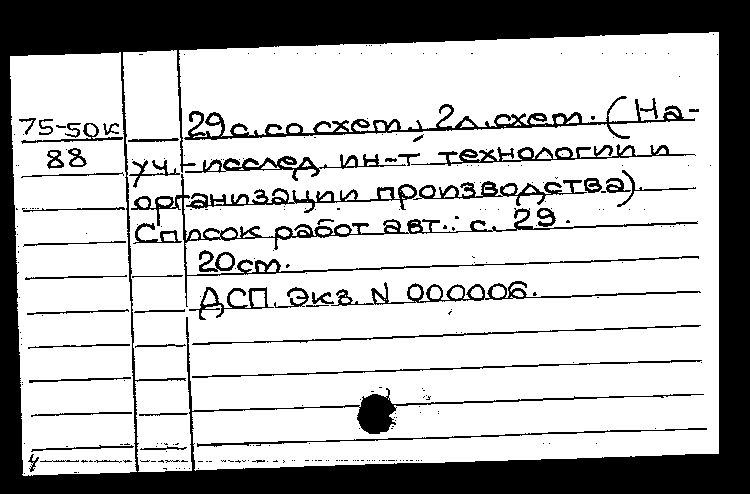 75-50к 29с. со схем.; 2л. схем. (На-
88 уч.-исслед. ин-т технологии и
организации производства).
Список работ авт.: с. 29.
20 см.
ДСП. Экз. N 000006.
4